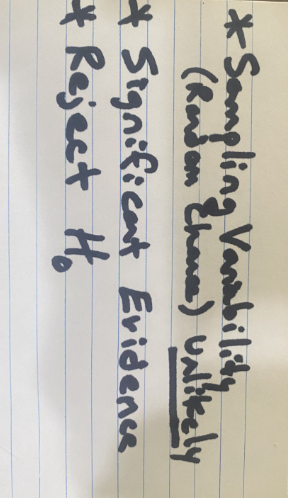 * Sampling Variability
(Random Chance) Unlikely
* Significant Evidence
* Reject H₀